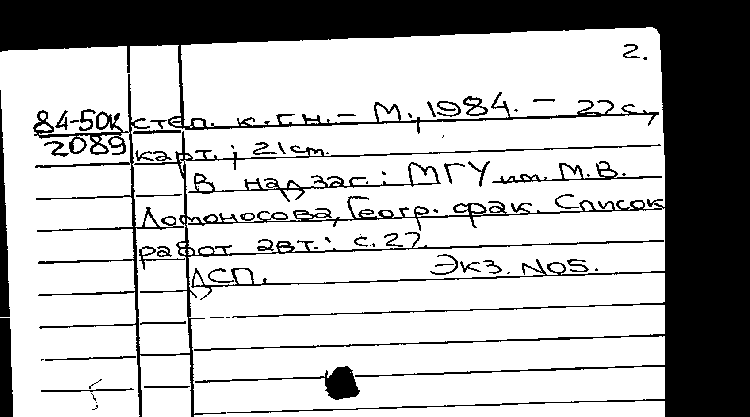 2.
84-50к степ. к.г.н. – М., 1984. – 27 с.,
2089 карт.; 21 см.
В надзаг.: МГУ им. М.В.
Ломоносова, Геогр. фак. Список
работ авт.: с. 27.
ДСП. Экз. №05.